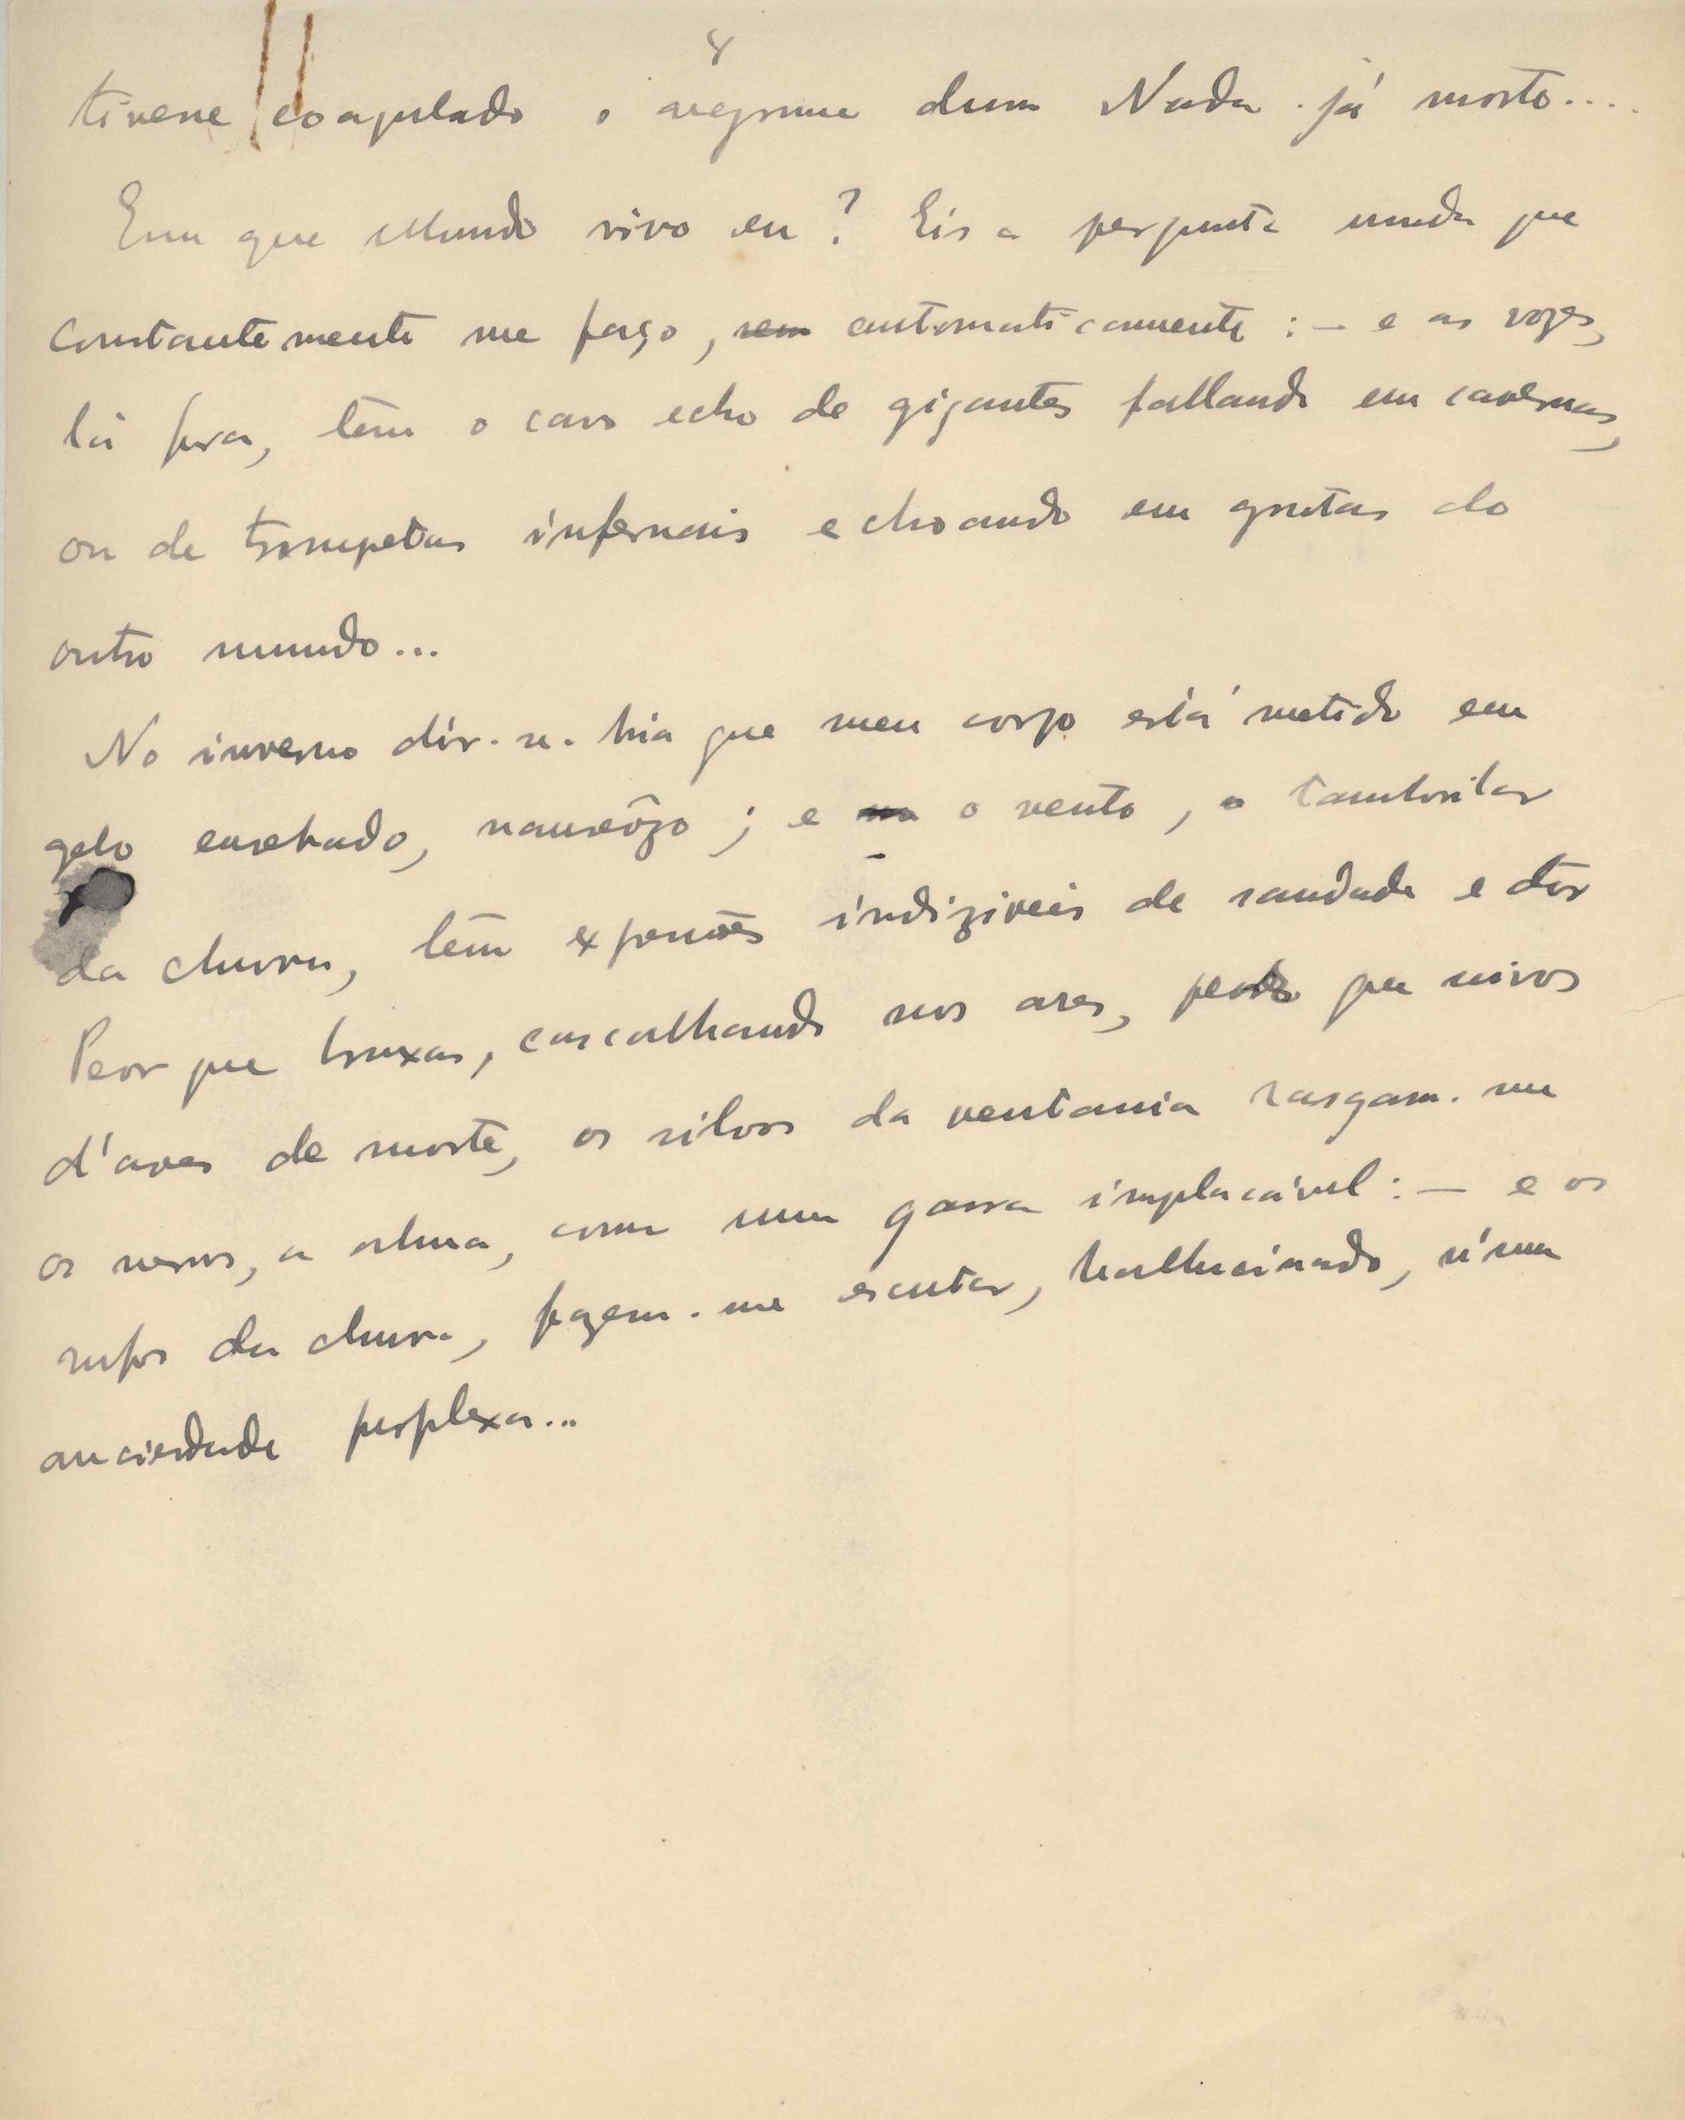 8
tivesse coagulado o negrume dum Nada já morto....
Em que Mundo vivo eu? Eis a pergunta muda que
constantemente me faço, sem automaticamente: — e as vozes,
lá fora, têm o cavo echo de gigantes fallando em cavernas,
ou de trompetas infernais echoando em grutas do
outro mundo...
No inverno dir-se-hia que meu corpo está metido em
gelo ensebado, nauseôzo; e o vento, o tamborilar
da chuva, têm expressões indiziveis de saudade e dôr
Peor que bruxas, cascalhando nos ares, que uivos
d'aves de morte, os silvos da ventania rasgam-me
os nervos, a alma, como uma garra implacável: — e os
rufos da chuva, fazem-me escutar, hallucinado, n'uma
anciedade perplexa...